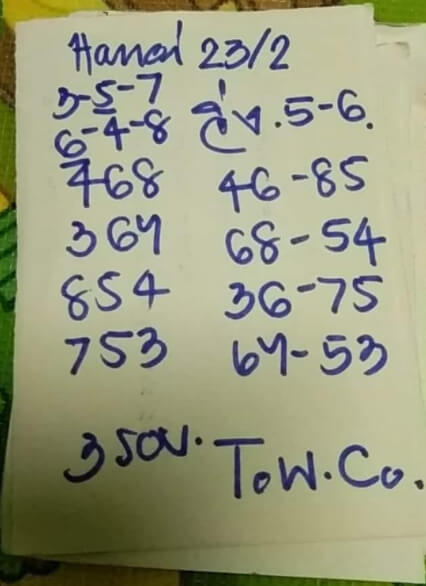 Hanoi 23/2
3-5-7
6-4-8 วิ่ง.5-6.
468 46-85
364 68-54
854 36-75
753 64-53
3 รอบ. T.W.Co.